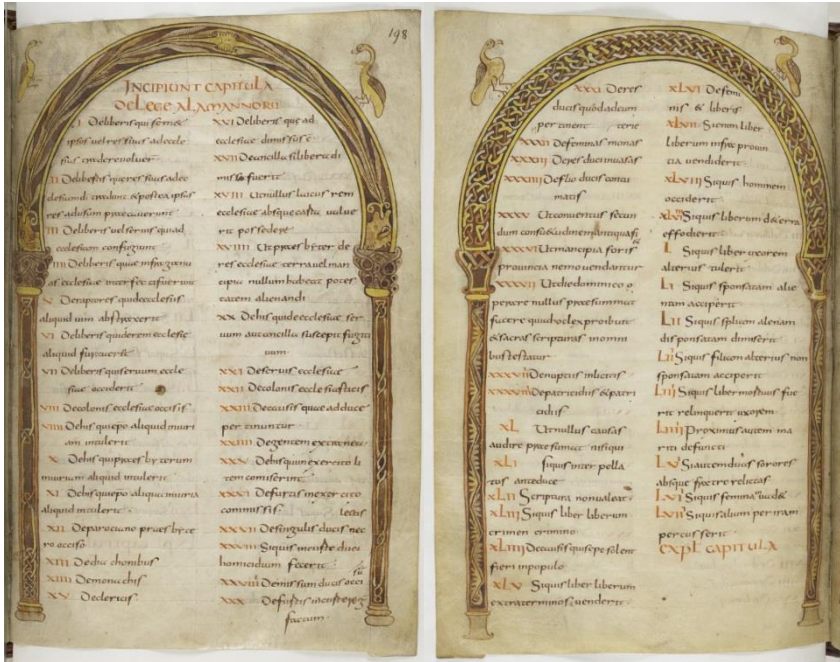 198
INCIPIUNT CAPITULA
DE LEGE ALAMANNORU
I De liberis qui se suas
ipsos vel res suas ad eccle
sias tradere voluer
II De liberis qui res suas ad ec
clesiam tradunt & postea ipsas
res ad usum
III De liberis vel servis qui ad
ecclesiam confugiunt
IIII De liberis qui infra
as ecclesiae interfecti fuerint
V De raptores qui de ecclesiis
aliquid abstraxerit
VI De liberis qui de rem ecclesie
aliquid furaverit
VII De liberis qui servum eccle
siae occiderit
VIII De colonis ecclesiae occisis
VIIII De his qui epo aliquid iniuri
am intulerit
X De his qui presbyterum
iniuriam aliquid intulerit
XI De his qui epo aliqui iniuria
aliquid intulerit
XII De parociano presbyte
ro occiso
XIII De diaconibus
XIIII De monachis
XV De clericis
XVI De liberis qui ad
ecclesiae dimissus e
XVII De ancilla si libera di
missa fuerit
XVIII Ut nullus laicus rem
ecclesiae absque carta value
rit possedere
XVIIII Ut presbyter de
res ecclesiae terra vel man
cipia nullum habeat potes
tatem alienandi
XX De his qui de ecclesiae ser
vum aut ancilla suscepit fugiti
vum
XXI De servis ecclesiae
XXII De colonis ecclesiasticis
XXIII De causis quae ad duce
pertinuntur
XXIIII De gentem extraneu
XXV De his qui in exercito li
tem comiserint
XXVI De furtis in exercito
commissis
lectis
XXVII De singulis ducis nec
XXVIII Siquis missus duci
homicidium fecerit
XXVIIII De missum ducis occi
su
XXX De furtis
factum
XXXI De res
ducis quod ad eum
pertinent
XXXII De feminas
XXXIII De res duci invasas
XXXIIII De filio ducis contu
matis
XXXV Ut conventus secun
dum consuetudinem antiqua
XXXVI Ut mancipia foris
provincia nemo vendantur
XXXVII Ut die dominico o
perare nullus praesummat
facere quia hoc lex prohibuit
& sacras scripturas in omni
bus testatur
XXXVIII De nuptiis inlicitis
XXXVIIII De patricidiis & patri
cidiis
XL Ut nullus causas
audire praesumat nisi qui
XLI Siquis interpella
tus ante duce
XLII Scriptura non valeat
XLIII Siquis liber liberum
crimen crimino
XLIIII De causis qui sepe solent
fieri in populo
XLV Siquis liber liberum
extra terminos venderit
XLVI De femi
nis & liberis
XLVII Siquis liber
liberum infra provin
cia venderit
XLVIII Siquis hominem
occiderit
XLVIIII Siquis liberum de terra
effoderit
L Siquis liber uxorem
alterius tulerit
LI Siquis sponsatam alie
nam acciperit
LII Siquis filiam alienam
disponsatam dimiserit
LII Siquis filiam alterius non
sponsatam acciperit
LIII Siquis liber mortuus fue
rit relinquerit uxorem
LIIII Proximus autem ma
riti defuncti
LV Si autem duas sorores
absque fratre relictas
LVI Siquis femina
LVII Siquis alium per iram
percusserit
EXPL CAPITULA